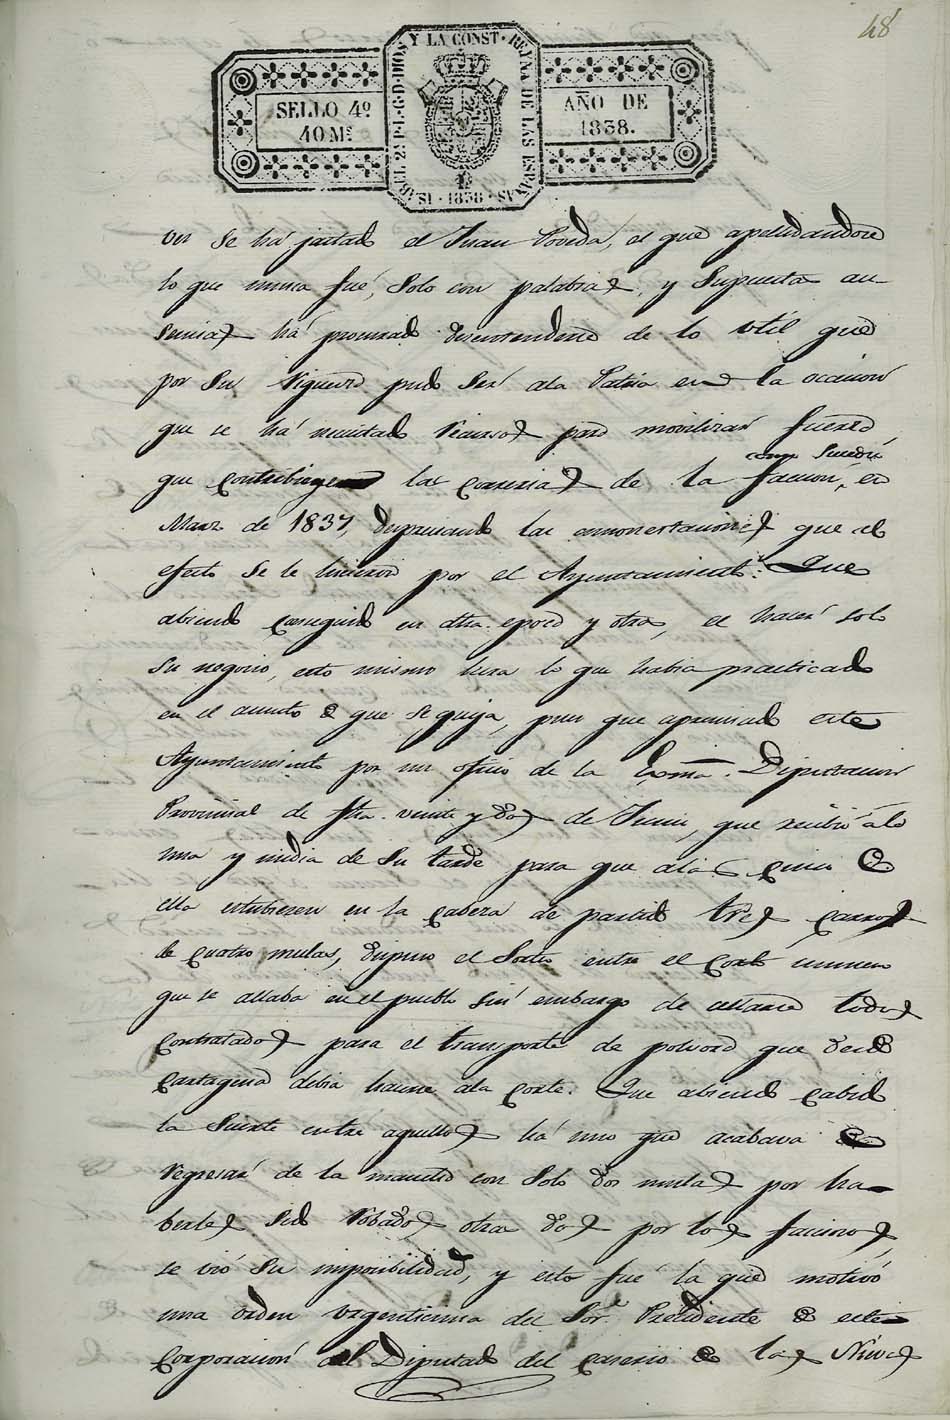 48
SELLO 4º
40 Ms
ISABEL 2ª P.L.G.D.DIOS Y LA CONST. REYNA DE LAS ESPAÑAS
1838
AÑO DE
1838.
ver se há jactado el Juan Poveda, el que apellidandose
lo que nunca fué, Solo con palabras, y Supuestas au-
sencias há procurado desentenderse de lo util que
por su riqueza pudo Ser ala Patria en la ocasion
que se há necesitado recursos para movilizar fuerza
como Sucedió
que contubiesen las correrias de la faccion, en
Marzo de 1837, despreciando las amonestaciones que al
efecto se le hicieron por el Ayuntamiento: Que
abiendo conseguido en dha. epoca y otras, el hacer solo
su negocio, esto mismo hera lo que habia practicado
en el asunto de que se queja, pues que apremiado este
Ayuntamiento por un oficio de la Exma. Diputacion
Provincial de fha. veinte y dos de Junio, que recibió á la
una y media de su tarde para que alas cinco de
ella estubiesen en la cabeza de partido tres carros
de cuatro mulas, dispuso el Sorteo entre el corto numero
que se allaba en el pueblo sin embargo de allarse todos
contratados para el transporte de polvora que desde
Cartagena debia hacerse ala Corte. Que abiendo cabido
la Suerte entre aquellos há uno que acabava de
regresar de la mancha con Solo dos mulas por ha-
berles Sido robados otras dos por los facciosos,
se vió su imposibilidad, y esto fué la que motivó
una orden urgentisima del Sor. Presidente de esta
Corporacion al Diputado del caserio de las Nieves